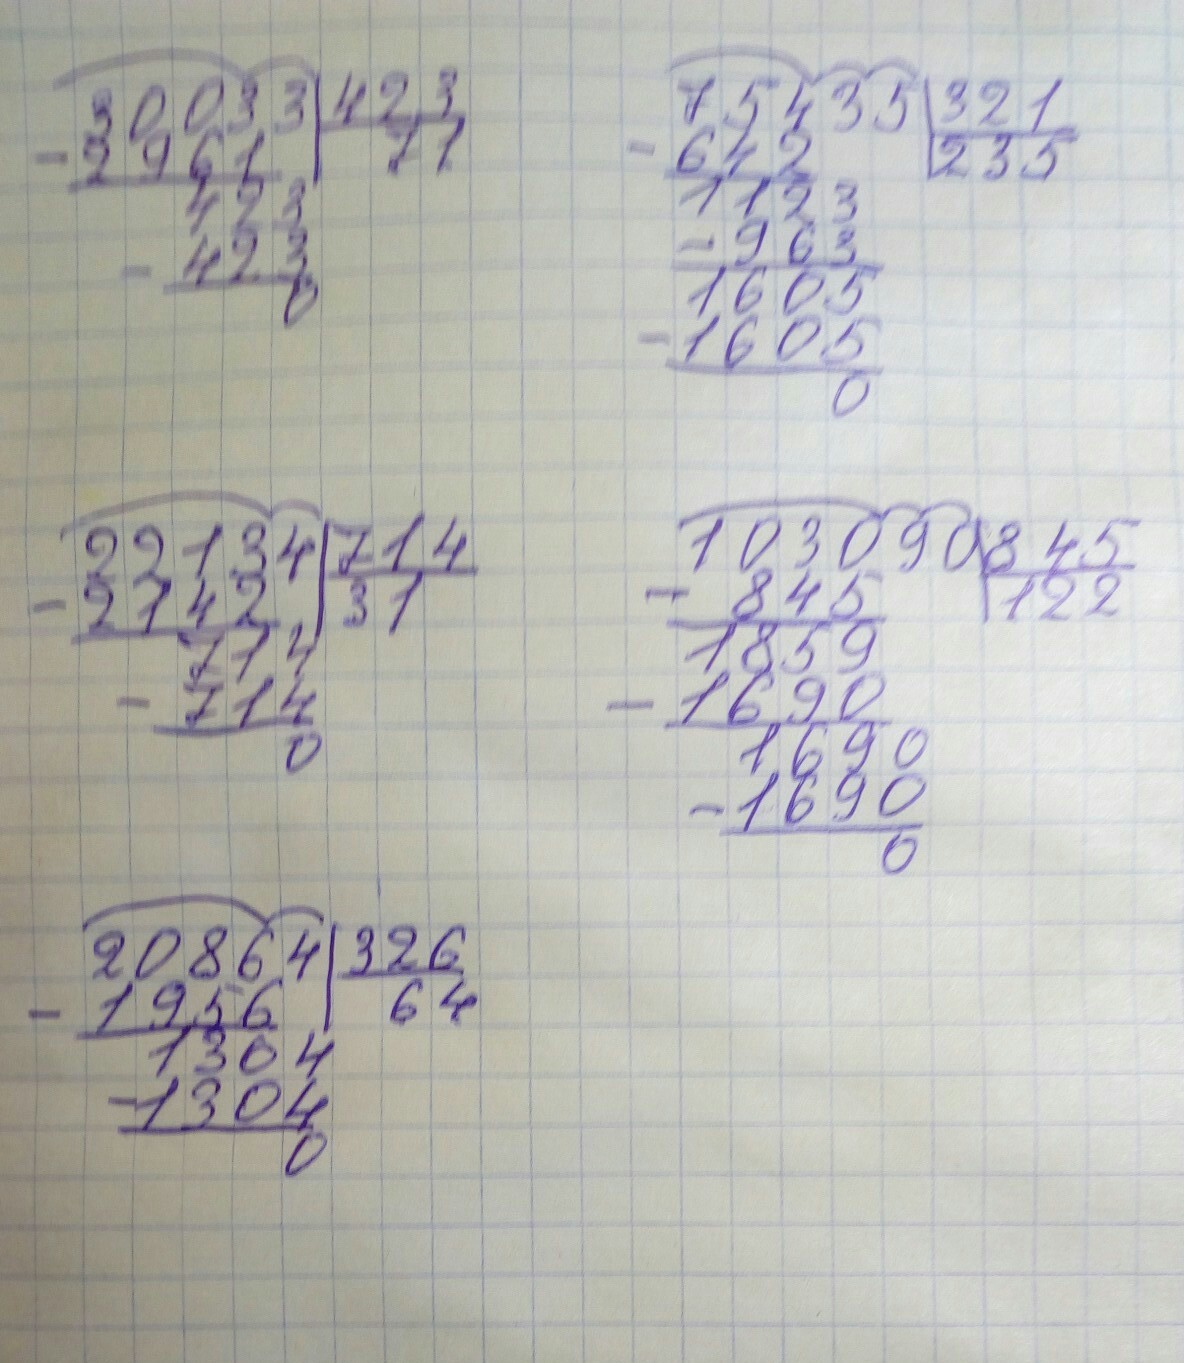 30033 423
- 2961 71
423
- 423
0
75435 321
- 642 235
1123
- 963
1605
- 1605
0
22134 714
- 2142 31
714
- 714
0
103090 845
- 845 122
1859
- 1690
1690
- 1690
0
20864 326
- 1956 64
1304
- 1304
0